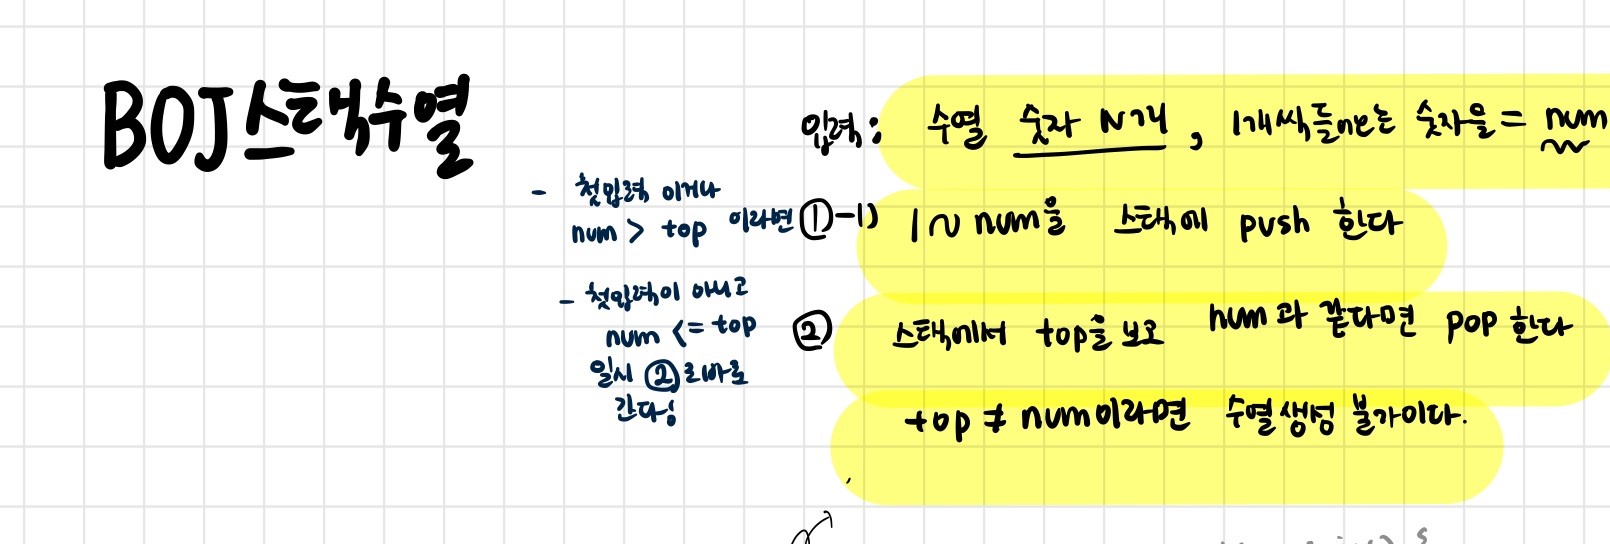 BOJ 스택수열
입력: 수열 숫자 N개, 1개씩 들어오는 숫자을 = num
- 첫입력 이거나
num > top 이라면 ①-1) 1~num을 스택에 push 한다
- 첫입력이 아니고
num <= top
일시 ②로바로
간다;
② 스택에서 top을 보고 num과 같다면 pop 한다
top ≠ num이라면 수열생성 불가이다.